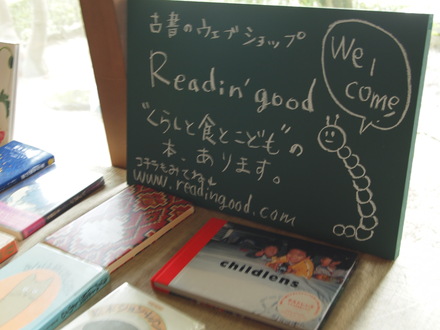 古書のウェブショップ
Readin'good
"くらしと食とこども"の
本、あります。
コチラもみてネ
www.readingood.com
Wel
come
childlens